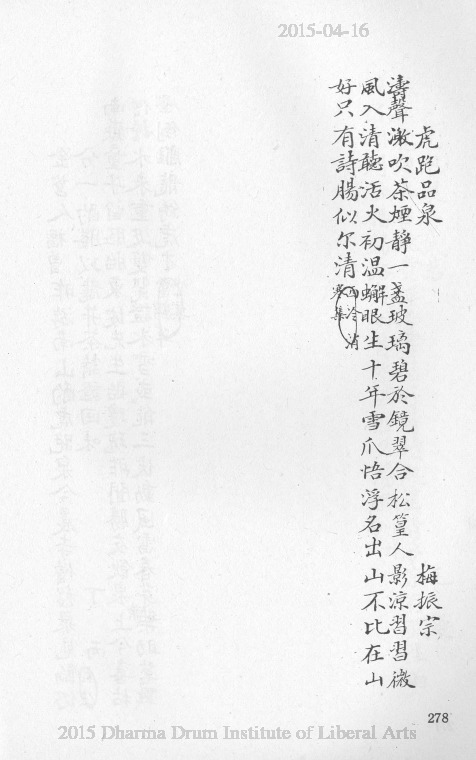 2015-04-16
虎跑品泉　梅振宗
濤聲漱吹茶煙靜一盞玻璃碧於鏡翠合松篁人影涼習習微
風入清聽活火初温蠏眼生十年雪爪悟浮名出山不比在山
好只有詩腸似尔清（西泠消
寒集）
278
2015 Dharma Drum Institute of Liberal Arts